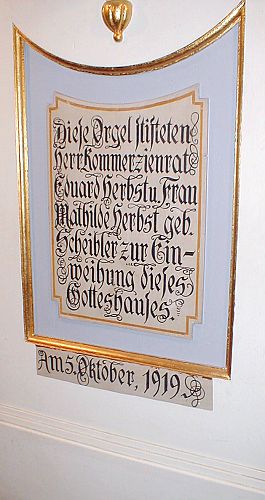 Diese Orgel stifteten
Herr Kommerzienrat
Eduard Herbst u. Frau
Mathilde Herbst geb.
Scheibler zur Ein-
weihung dieses
Gotteshauses.
Am 5. Oktober, 1919.